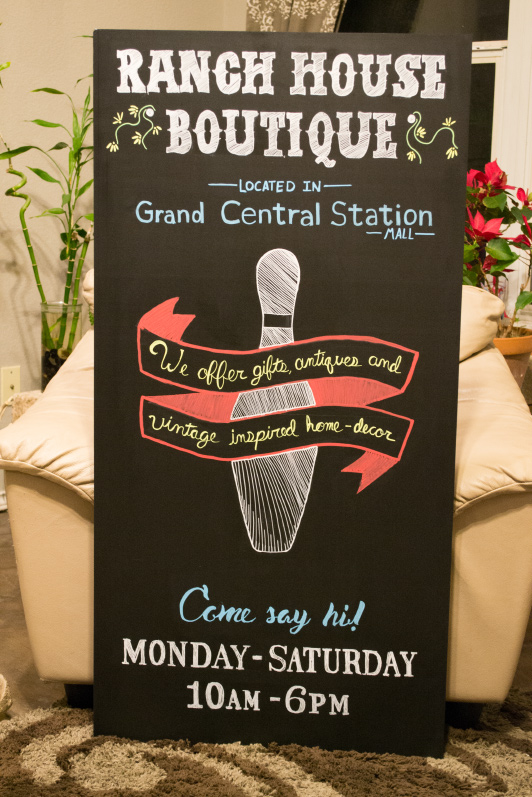 RANCH HOUSE
BOUTIQUE
LOCATED IN
Grand Central Station
MALL
We offer gifts, antiques and
vintage inspired home-decor
Come say hi!
MONDAY-SATURDAY
10AM-6PM